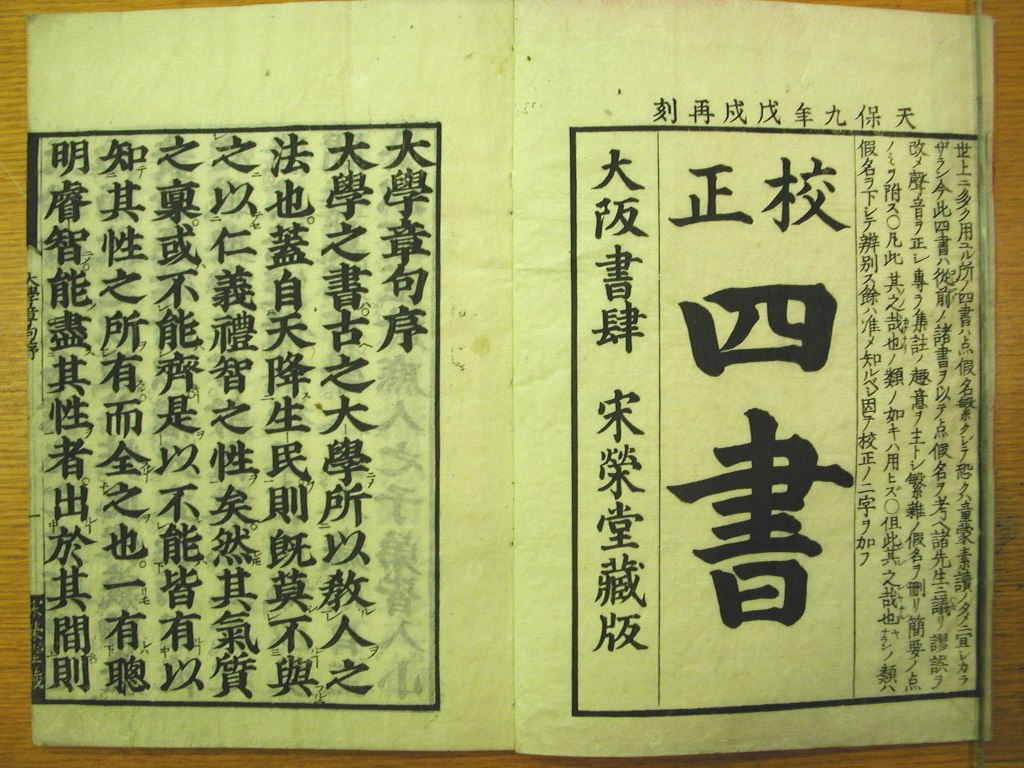 天保九年戊戍再刻
世上ニ多ク用ユル所ノ四書ハ点假名繁多クシテ恐クハ童蒙素讀ノタメニ宜シカラ
ザラン今此四書ハ從前ノ諸書ヲ以テ点假名ヲ考ヘ諸先生ニ議リ謬誤ヲ
改メ聲音ヲ正シ專ラ集註ノ趣意ヲ主トシ繁雜ノ假名ヲ刪リ簡要ノ点
ノミヲ附ス〇凡此其之哉也ノ類ノ如キハ用ヒズ〇但此其之哉也ノ類ハ
假名ヲ下シテ辨别ス餘ハ准メ知ルベシ因テ校正ノ二字ヲ加フ
校正
四書
大阪書肆 宋榮堂藏版
大學章句序
大學之書古之大學所以教人之
法也。蓋自天降生民則旣莫不與
之以仁義禮智之性矣。然其氣質
之稟或不能齊是以不能皆有以
知其性之所有而全之也。一有聰
明睿智能盡其性者。出於其間則
大學章句序